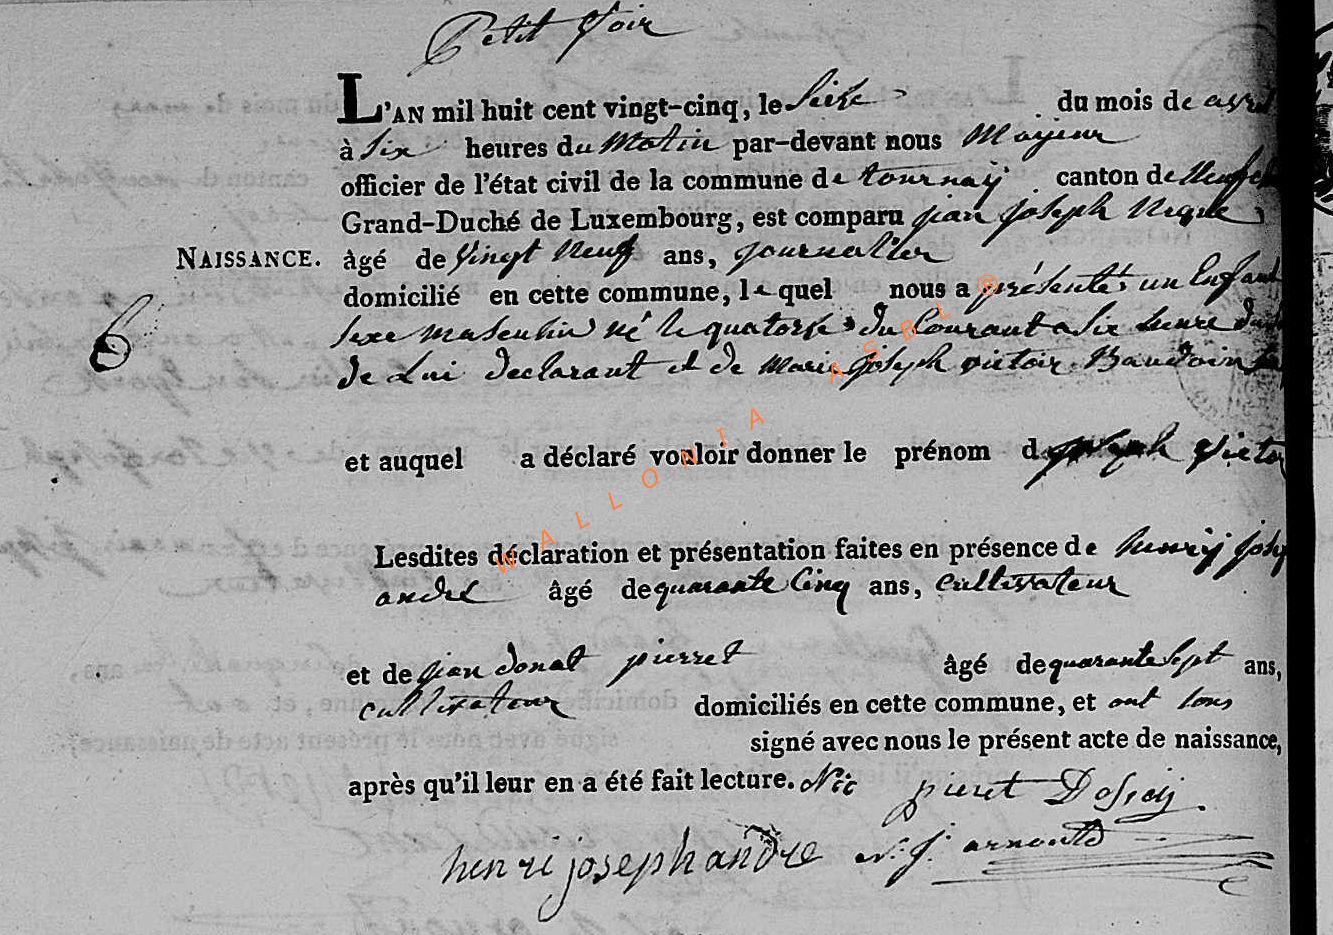 Petit Voir
L'AN mil huit cent vingt-cinq, le Seize du mois de avril
à Six heures du Matin par-devant nous Mayeur
officier de l'état civil de la commune de tournay canton de Neufch
Grand-Duché de Luxembourg, est comparu jean joseph
NAISSANCE. âgé de Vingt Neuf ans, journallier
domicilié en cette commune, le quel nous a présenté un Enfant
6 sexe masculin né le quatorse du Courant a Six heure du
de Lui declarant et de Marie joseph victoire Baudoin
et auquel a déclaré vouloir donner le prénom de joseph Victor
Lesdites déclaration et présentation faites en présence de henry josep
andre âgé de quarante Cinq ans, Cultivateur
et de jean donat pierret âgé de quarante Sept ans,
cultivateur domiciliés en cette commune, et ont tous
signé avec nous le présent acte de naissance,
après qu'il leur en a été fait lecture. Nic
pieret Dossoij
henri joseph andre N. J. arnould
WALLONIA ASBL ®